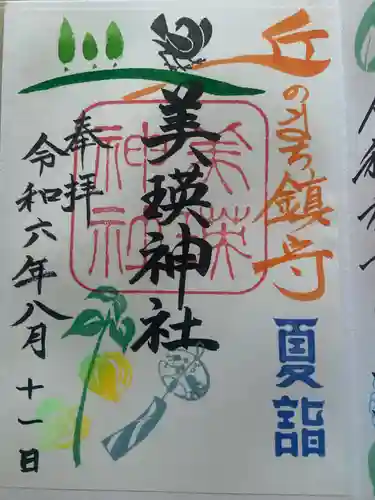 丘のまち鎮守
夏詣
美瑛神社
奉拝
令和六年八月十一日
美瑛
神社